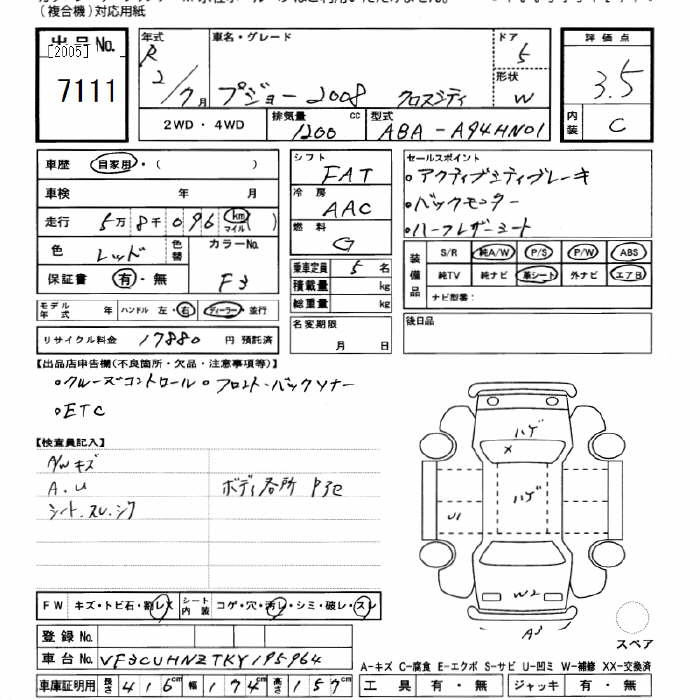 (複合機)対応用紙
出品No.
[2005]
7111
年式
R 2/7月
車名・グレード
プジョー 2008 クロスシティ
ドア
5
形状
W
評価点
3.5
内装
C
2WD・4WD
排気量 cc
1200
型式
ABA-A94HN01
車歴 自家用・( )
車検 年 月
走行 5万8千096 km マイル ( )
色 レッド 色替
カラーNo.
F3
保証書 有・無
モデル年式 年 ハンドル 左・右 ディーラー・並行
リサイクル料金 17880 円 預託済
シフト
FAT
冷房
AAC
燃料
G
乗車定員 5 名
積載量 kg
総重量 kg
名変期限
月 日
セールスポイント
・アクティブシティブレーキ
・バックモニター
・ハーフレザーシート
装備品
S/R 純A/W P/S P/W ABS
純TV 純ナビ 革シート 外ナビ エアB
ナビ型番:
後日品
【出品店申告欄(不良箇所・欠品・注意事項等)】
・クルーズコントロール・フロント・バックソナー
・ETC
【検査員記入】
A/Wキズ
A.U
シート.スレ.シワ
ボディ各所 P3C
ハゲ
X
ハゲ
U1
W2
A3
スペア
FW キズ・トビ石・割レ X シート内装 コゲ・穴・汚レ・シミ・破レ・スレ
登録No.
車台No. VF3CUHNZTKY195964
車庫証明用 長さ 416cm 幅 174cm 高さ 157cm
A-キズ C-腐食 E-エクボ S-サビ U-凹ミ W-補修 XX-交換済
工具 有・無 ジャッキ 有・無